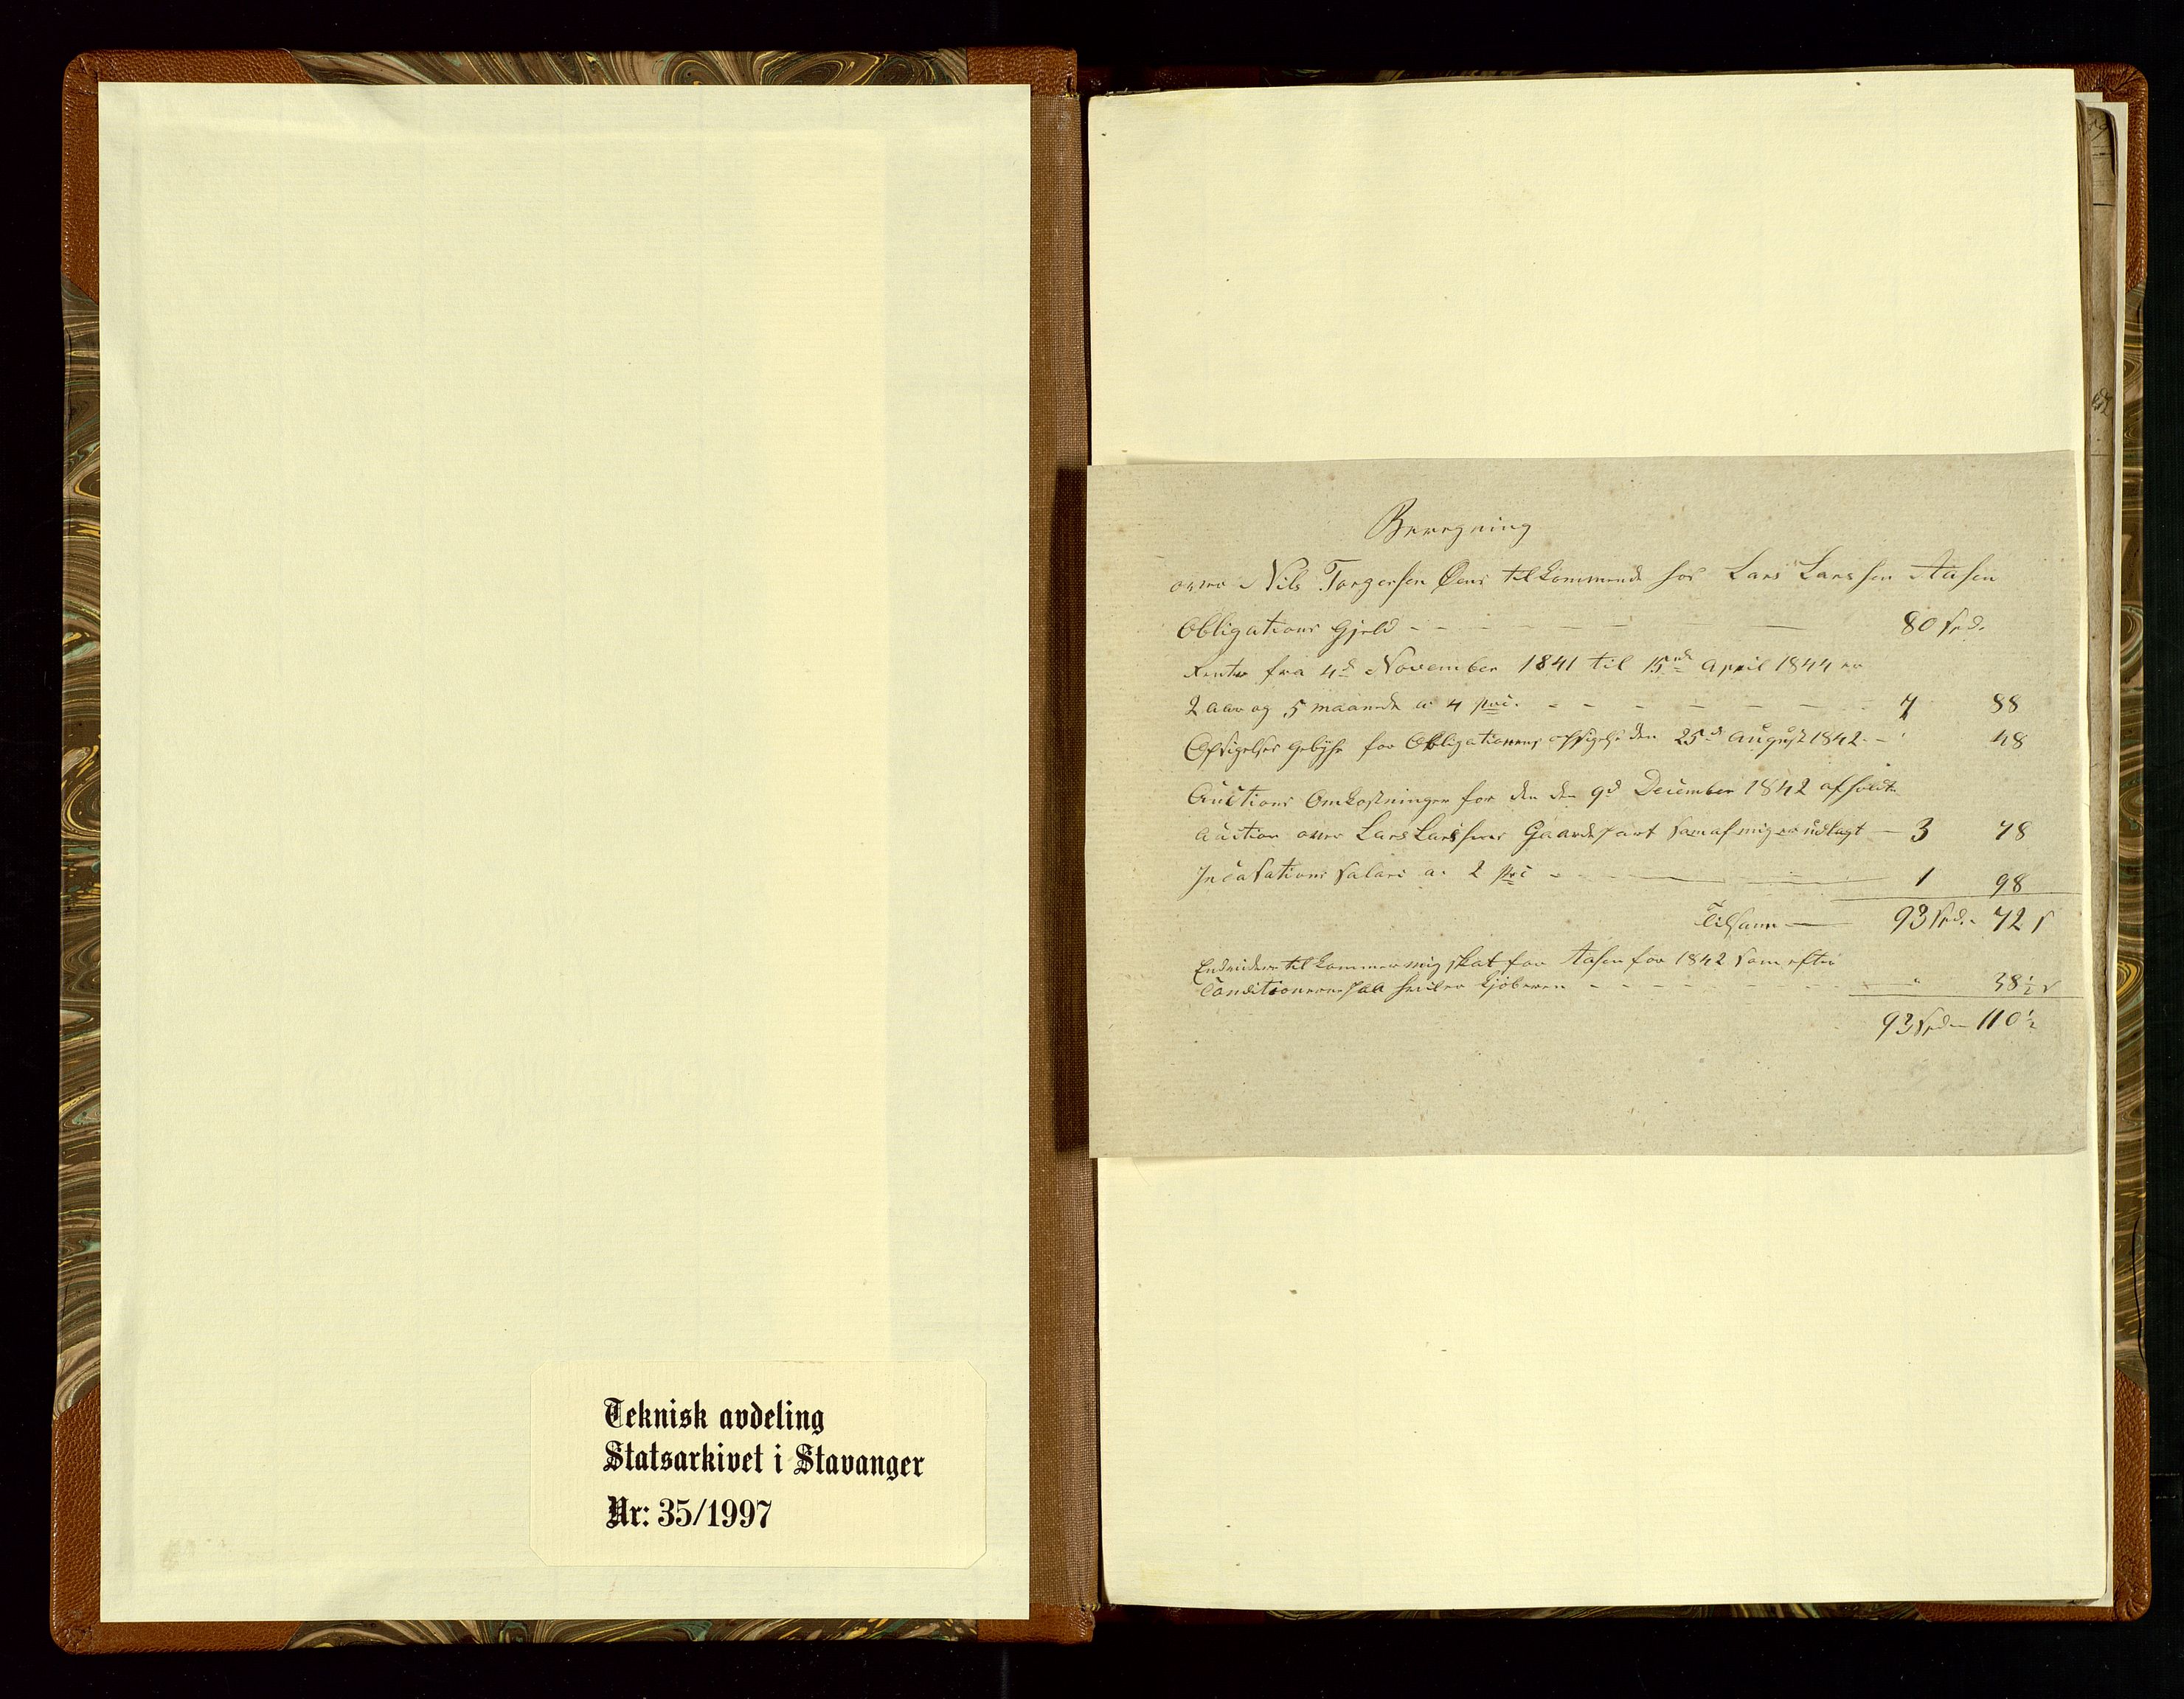 Teknisk avdeling
Statsarkivet i Stavanger
Nr: 35/1997
Beregning
over Nils Torgersen Øens tilkommende hos Lars Larssen Aasen
Obligations Gjeld - - - - - 80 Spd.
Rente fra 4d November 1841 til 15nde April 1844 er
2 aar og 5 maaneder a. 4 prc. - - - - - 7 88
Opsigelses Gebyhr for Obligationens opsigelse den 25de August 1842. - " 48
Auctions Omkostninger for den den 9d December 1842 afholdte
Auction over Lars Larssens Gaardepart som af mig er udlagt - 3 78
Incasations Salair a. 2 prc - - 1 98
Tilsamm — 93 Spd. - 72 s
Endvidere tilkommer mig skat for Aasen for 1842 som efter
Conditionerne skal hviler Kjøberen - - - - - - " 38½ s
93 Spd - 110½